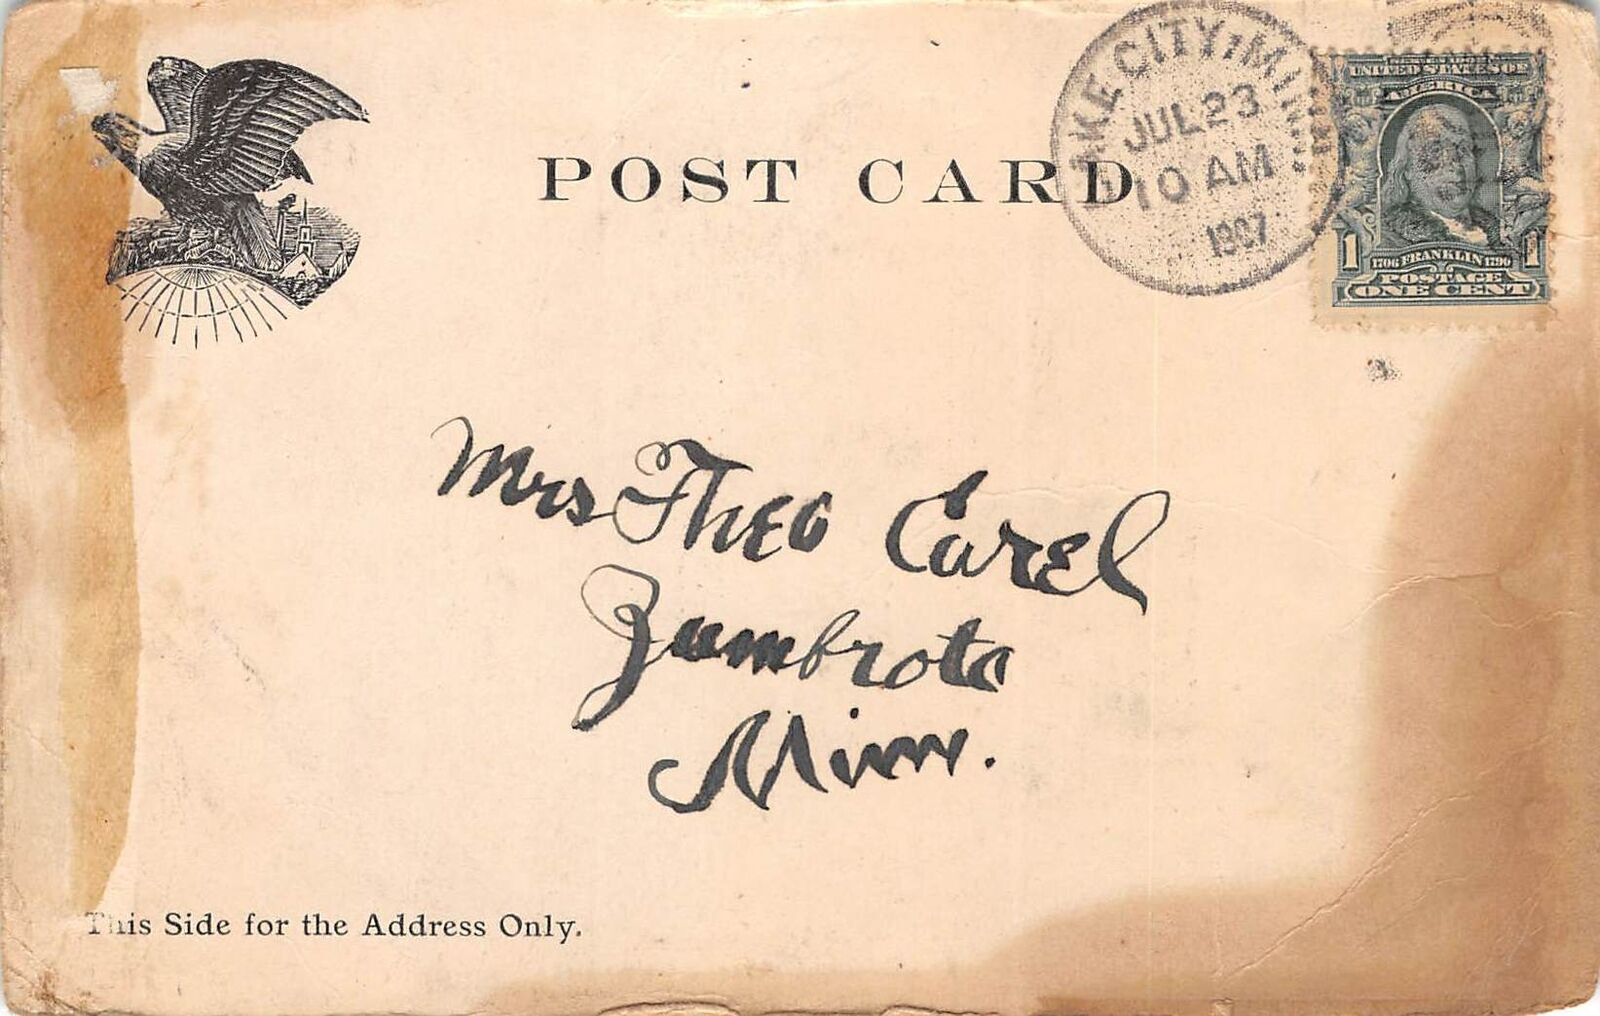 POST CARD
LAKE CITY, MINN.
JUL 23
10 AM
1907
UNITED STATES OF
AMERICA
1 1
1706 FRANKLIN 1790
POSTAGE
ONE CENT
Mrs Theo Carel
Zumbrota
Minn.
This Side for the Address Only.